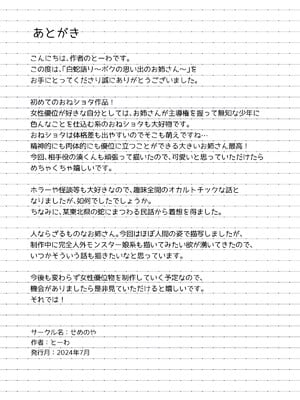 あとがき
こんにちは、作者のとーわです。
この度は、「白蛇語り～ボクの思い出のお姉さん～」を
お手にとってくださり誠にありがとうございました。
初めてのおねショタ作品！
女性優位が好きな自分としては、お姉さんが主導権を握って無知な少年に
色んなことを仕込む系のおねショタも大好物です。
おねショタは体格差も出やすいのでそこも萌えですね…
精神的にも肉体的にも優位に立つことができる大きいお姉さん最高！
今回、相手役の湊くんも頑張って描いたので、可愛いと思っていただけたら
めちゃくちゃ嬉しいです。
ホラーや怪談等も大好きなので、趣味全開のオカルトチックな話と
なりましたが、如何でしたでしょうか。
ちなみに、某東北県の蛇にまつわる民話から着想を得ました。
人ならざるもののお姉さん。今回はほぼ人間の姿で描写しましたが、
制作中に完全人外モンスター娘系も描いてみたい欲が湧いてきたので、
いつかそういう話も描きたいなと思っています。
今後も変わらず女性優位物を制作していく予定なので、
機会がありましたら是非見ていただけると嬉しいです。
それでは！
サークル名：せめのや
作者：とーわ
発行月：2024年7月